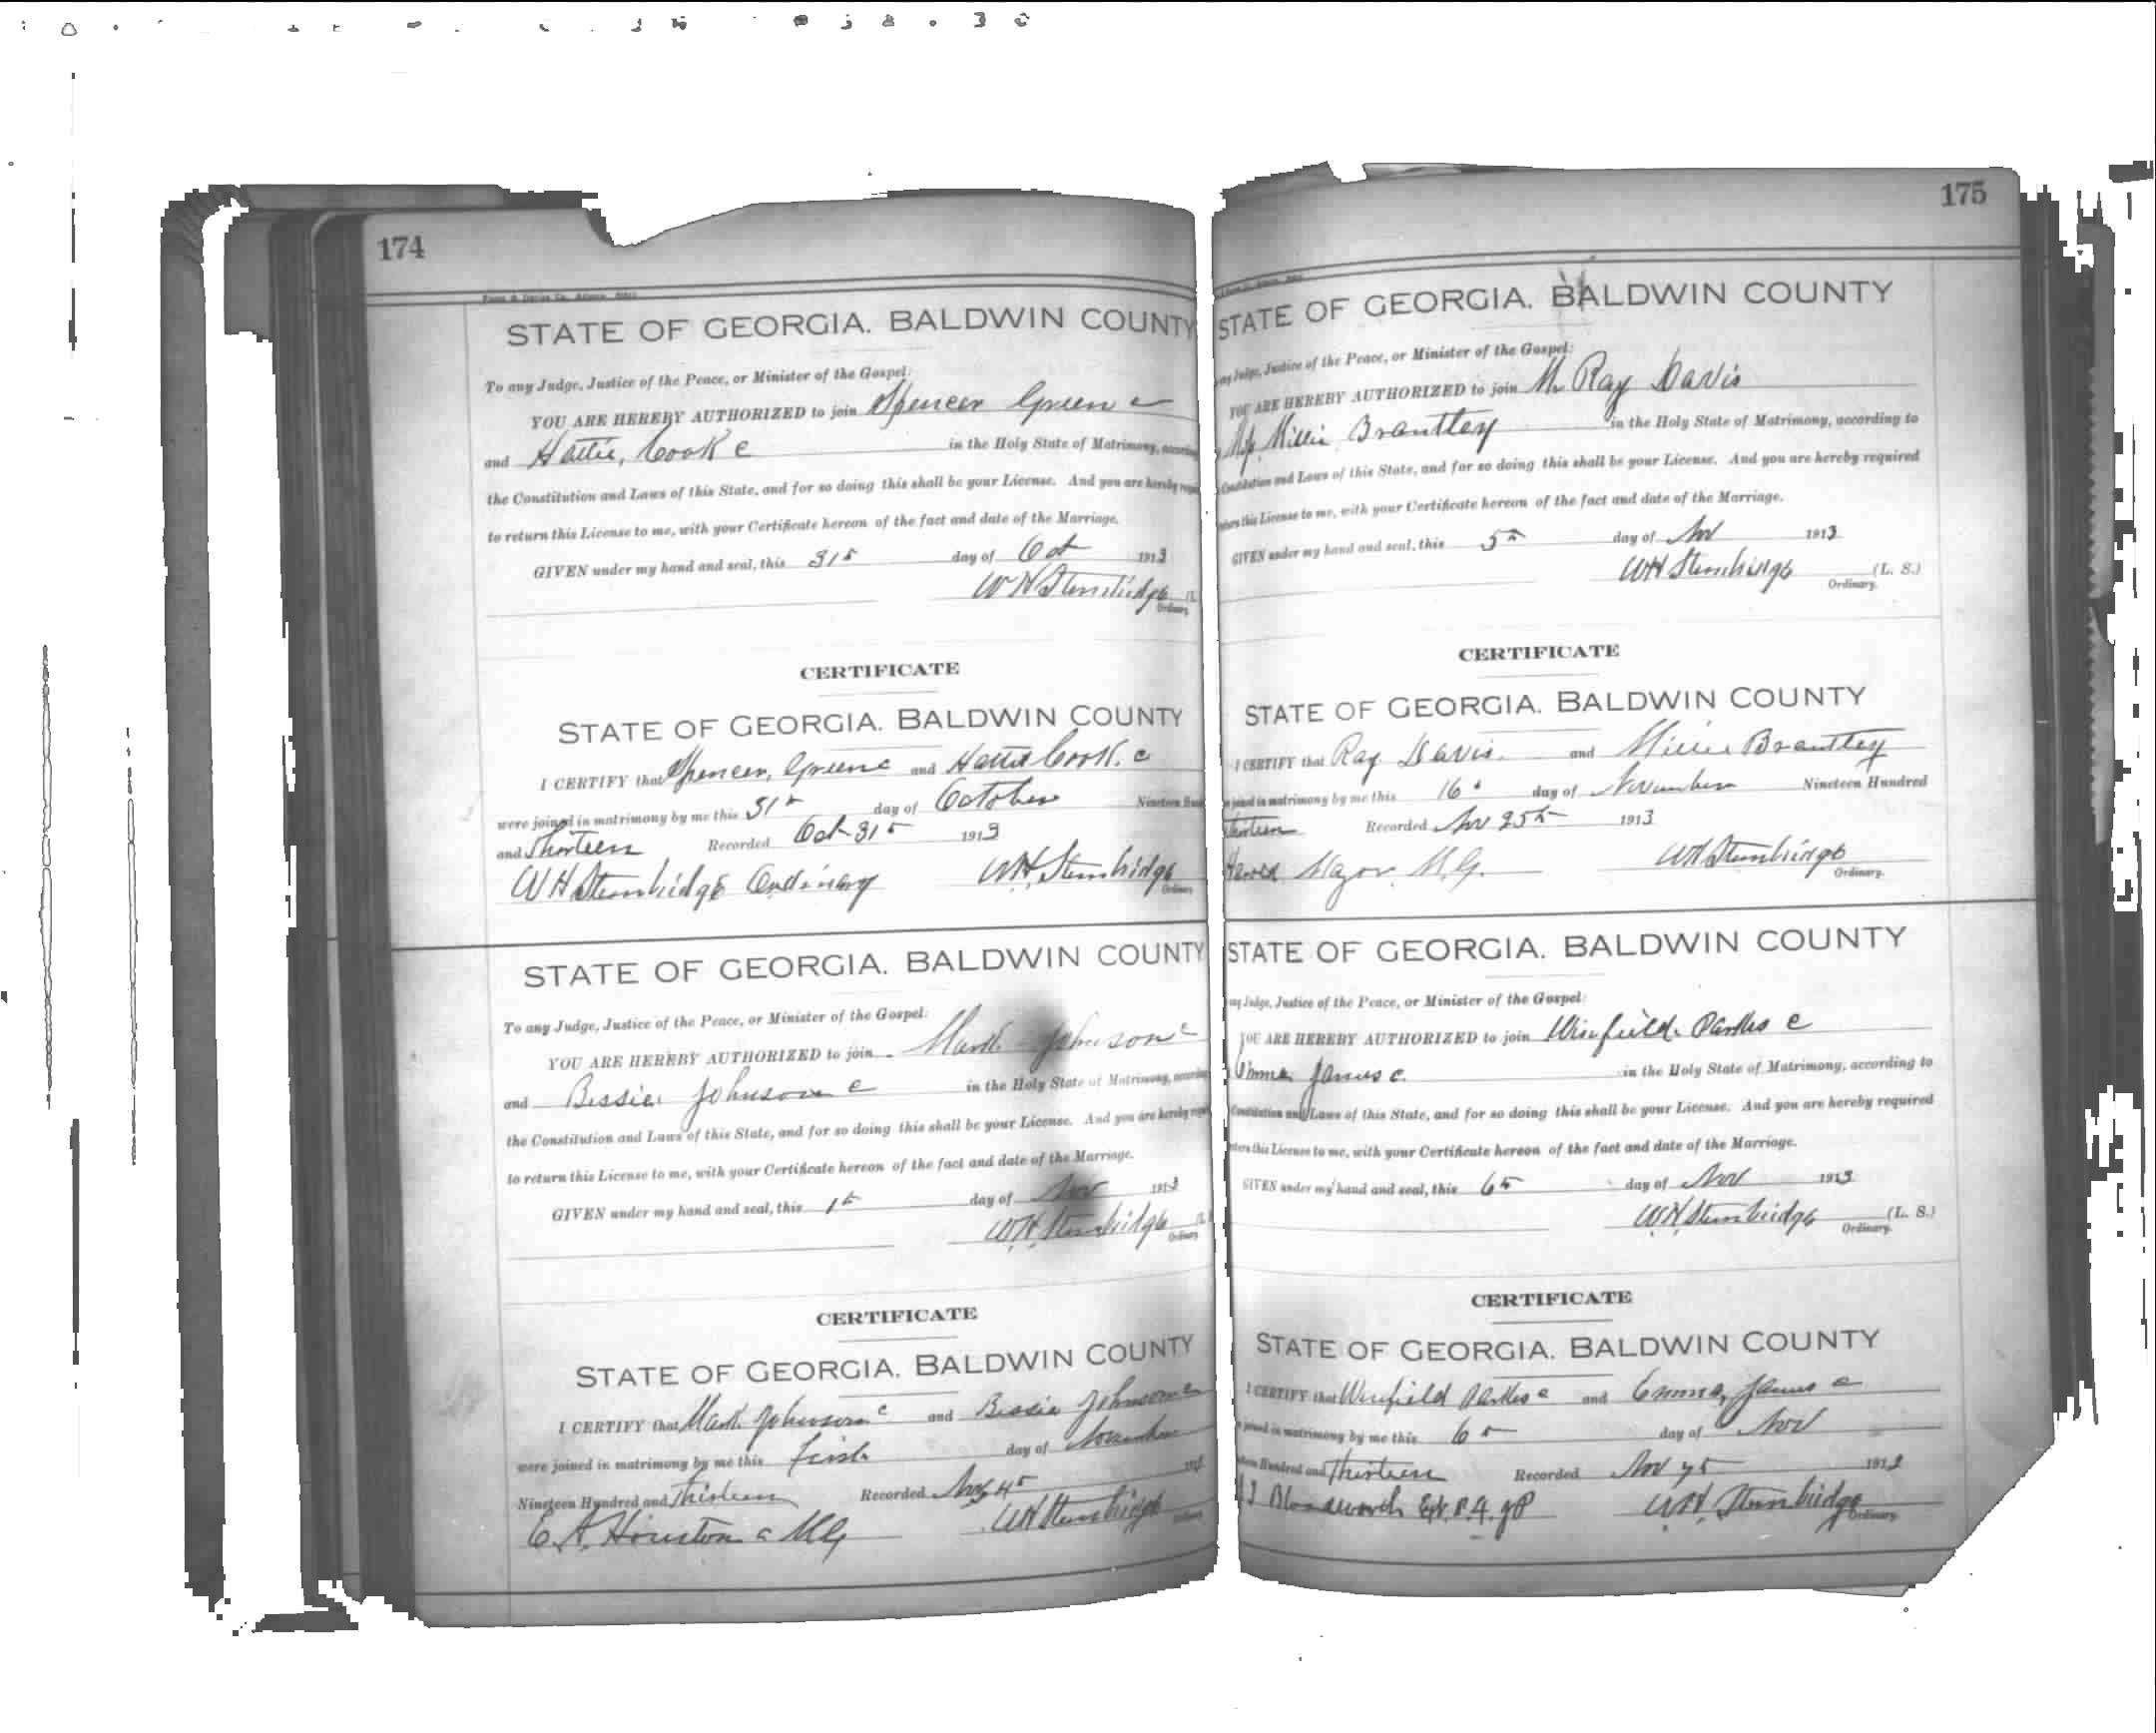 174
STATE OF GEORGIA. BALDWIN COUNTY
To any Judge, Justice of the Peace, or Minister of the Gospel:
YOU ARE HEREBY AUTHORIZED to join Spencer Green c
and Hattie, Cook c in the Holy State of Matrimony,
the Constitution and Laws of this State, and for so doing this shall be your License. And you are hereby
to return this License to me, with your Certificate hereon of the fact and date of the Marriage.
GIVEN under my hand and seal, this 31st day of Oct 1913
W H Stembridge
Ordinary
CERTIFICATE
STATE OF GEORGIA. BALDWIN COUNTY
I CERTIFY that Spencer, Greene and Hattie Cook. c
were joined in matrimony by me this 31st day of October Nineteen
and Thirteen Recorded Oct 31st 1913
W H Stembridge Ordinary W.H. Stembridge
Ordinary
STATE OF GEORGIA. BALDWIN COUNTY
To any Judge, Justice of the Peace, or Minister of the Gospel:
YOU ARE HEREBY AUTHORIZED to join Mark Johnson c
and Bessie Johnson c in the Holy State of Matrimony,
the Constitution and Laws of this State, and for so doing this shall be your License. And you are hereby
to return this License to me, with your Certificate hereon of the fact and date of the Marriage.
GIVEN under my hand and seal, this 1st day of Nov 1913
W.H. Stembridge
Ordinary
CERTIFICATE
STATE OF GEORGIA. BALDWIN COUNTY
I CERTIFY that Mark Johnson c and Bessie Johnson c
were joined in matrimony by me this first day of November
Nineteen Hundred and Thirteen Recorded Nov 4th
E. A. Houston c MG WH Stembridge
175
STATE OF GEORGIA. BALDWIN COUNTY
Judge, Justice of the Peace, or Minister of the Gospel:
YOU ARE HEREBY AUTHORIZED to join Mr Ray Davis
Millie Brantley in the Holy State of Matrimony, according to
Constitution and Laws of this State, and for so doing this shall be your License. And you are hereby required
this License to me, with your Certificate hereon of the fact and date of the Marriage.
GIVEN under my hand and seal, this 5th day of Nov 1913
WH Stembridge (L. S.)
Ordinary.
CERTIFICATE
STATE OF GEORGIA. BALDWIN COUNTY
I CERTIFY that Ray Davis. and Millie Brantley
joined in matrimony by me this 16 day of November Nineteen Hundred
Thirteen Recorded Nov 25th 1913
Major M.G. WH Stembridge
Ordinary.
STATE OF GEORGIA. BALDWIN COUNTY
Judge, Justice of the Peace, or Minister of the Gospel:
YOU ARE HEREBY AUTHORIZED to join Winfield. Parks c
Emma James c. in the Holy State of Matrimony, according to
Constitution and Laws of this State, and for so doing this shall be your License. And you are hereby required
this License to me, with your Certificate hereon of the fact and date of the Marriage.
GIVEN under my hand and seal, this 6th day of Nov 1913
W.H. Stembridge (L. S.)
Ordinary.
CERTIFICATE
STATE OF GEORGIA. BALDWIN COUNTY
I CERTIFY that Winfield Parks c and Emma, James c
joined in matrimony by me this 6th day of Nov
Hundred and Thirteen Recorded Nov 7th 1913
Bloodworth JP W.H. Stembridge
Ordinary.